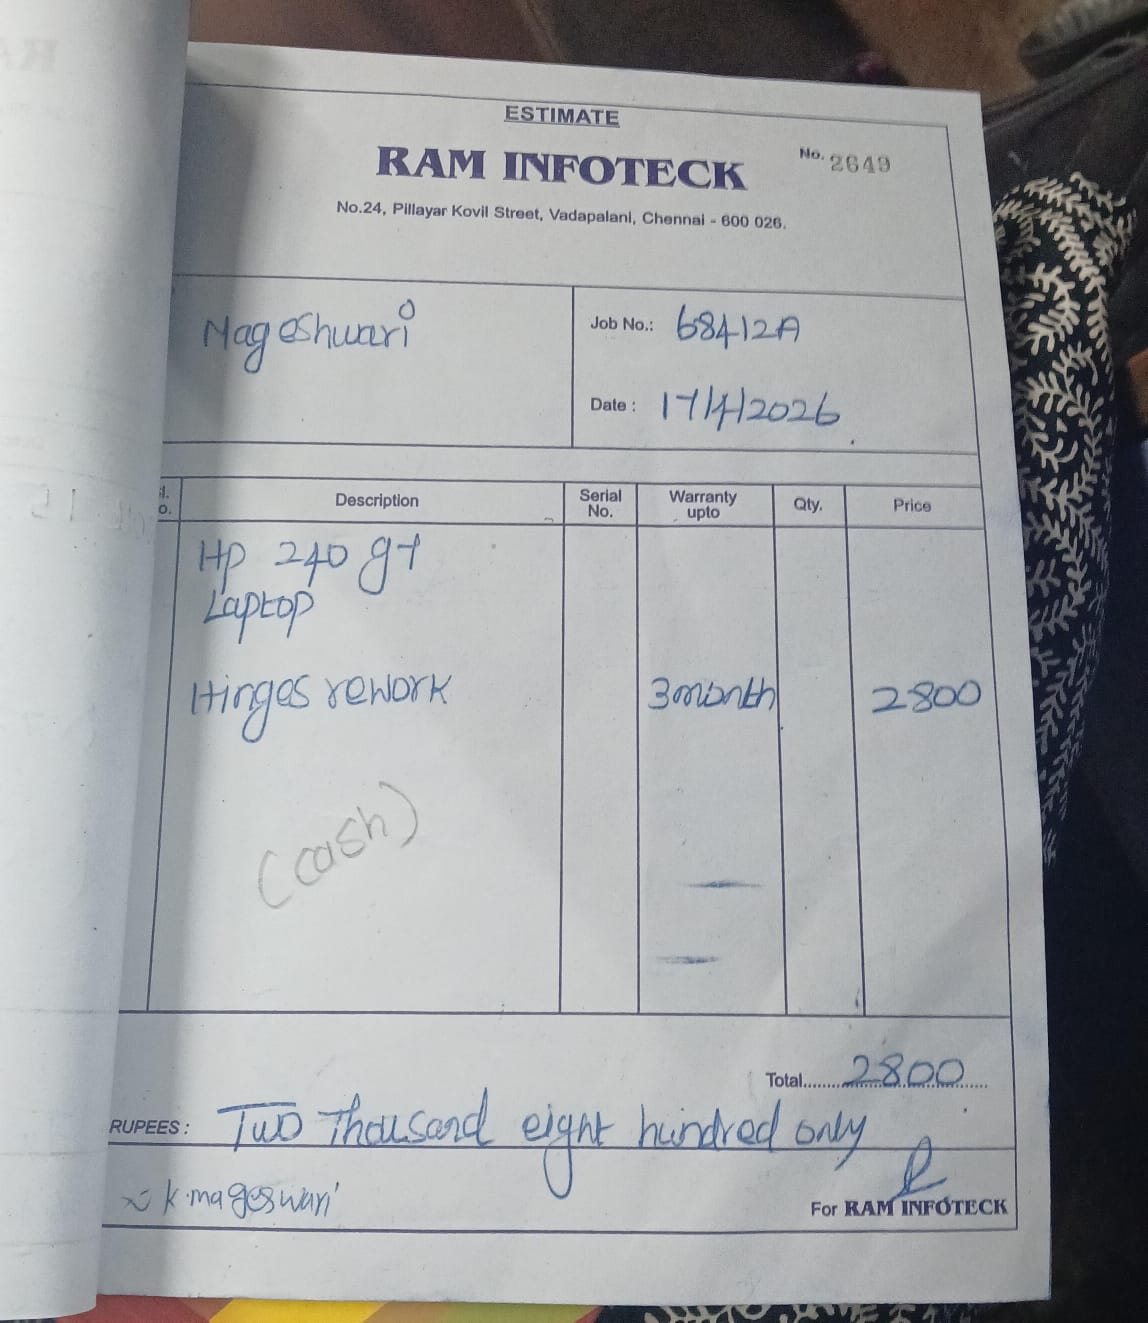 ESTIMATE
RAM INFOTECK
No. 2649
No.24, Pillayar Kovil Street, Vadapalani, Chennai - 600 026.
Mageshwari
Job No.: 68412A
Date : 17/4/2026
Description Serial No. Warranty upto Qty. Price
Hp 240 g7
Laptop
Hinges rework 3month 2800
(cash)
Total........2800......
RUPEES : Two Thousand eight hundred only
k.mageswari
For RAM INFOTECK